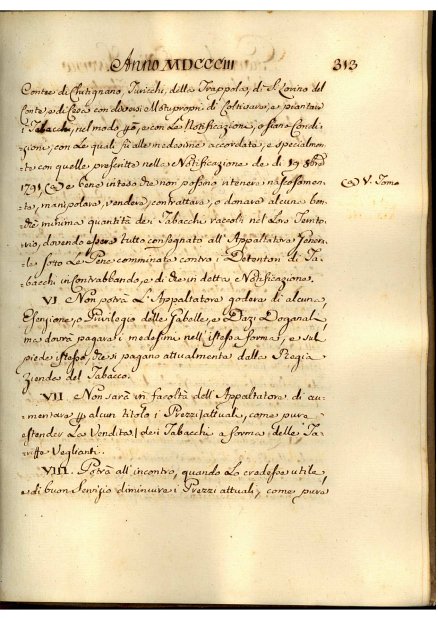 Anno MDCCCIII 313
Contee di Chitignano, Turicchi, della Trappola, di S. Leolino del
Conte, e di con diversi Motupropri di Coltivare, e piantare
i Tabacchi, nel modo però, e con le Notificazione, o siano Condi-
zioni, con le quali fù alle medesime accordato, e specialmen-
te con quelle prescritte nella Notificazione de dì 19 8bre
1791 (a) e bene inteso che non possino ritenere nascosamen-
te, manipolare, vendere, contrattare, o donare alcuna ben-
chè minima quantità dei Tabacchi raccolti nel loro Territo-
rio, dovendo essere tutto consegnato all' Appaltatore Genera-
le sotto le Pene comminate contro i Detentori di Ta-
bacchi in contrabbando, e di che in detta Notificazione.
(a) V. Tomo
VI. Non potrà L' Appaltatore godere di alcuna
Esenzione, o Privilegio delle Gabelle, e Dazi Doganali
ma dovrà pagare i medesimi nell' istessa forma, e sul
piede istesso, che si pagano attualmente dalla Regia
Azienda del Tabacco.
VII. Non sarà in facoltà dell' Appaltatore di au-
mentare per alcun titolo i Prezzi attuali, come pure
estender La Vendita dei Tabacchi a forma delle Ta-
riffe Veglianti.
VIII. Potrà all' incontro, quando Lo credesse utile,
e di buon Servizio diminuire i Prezzi attuali, come pure